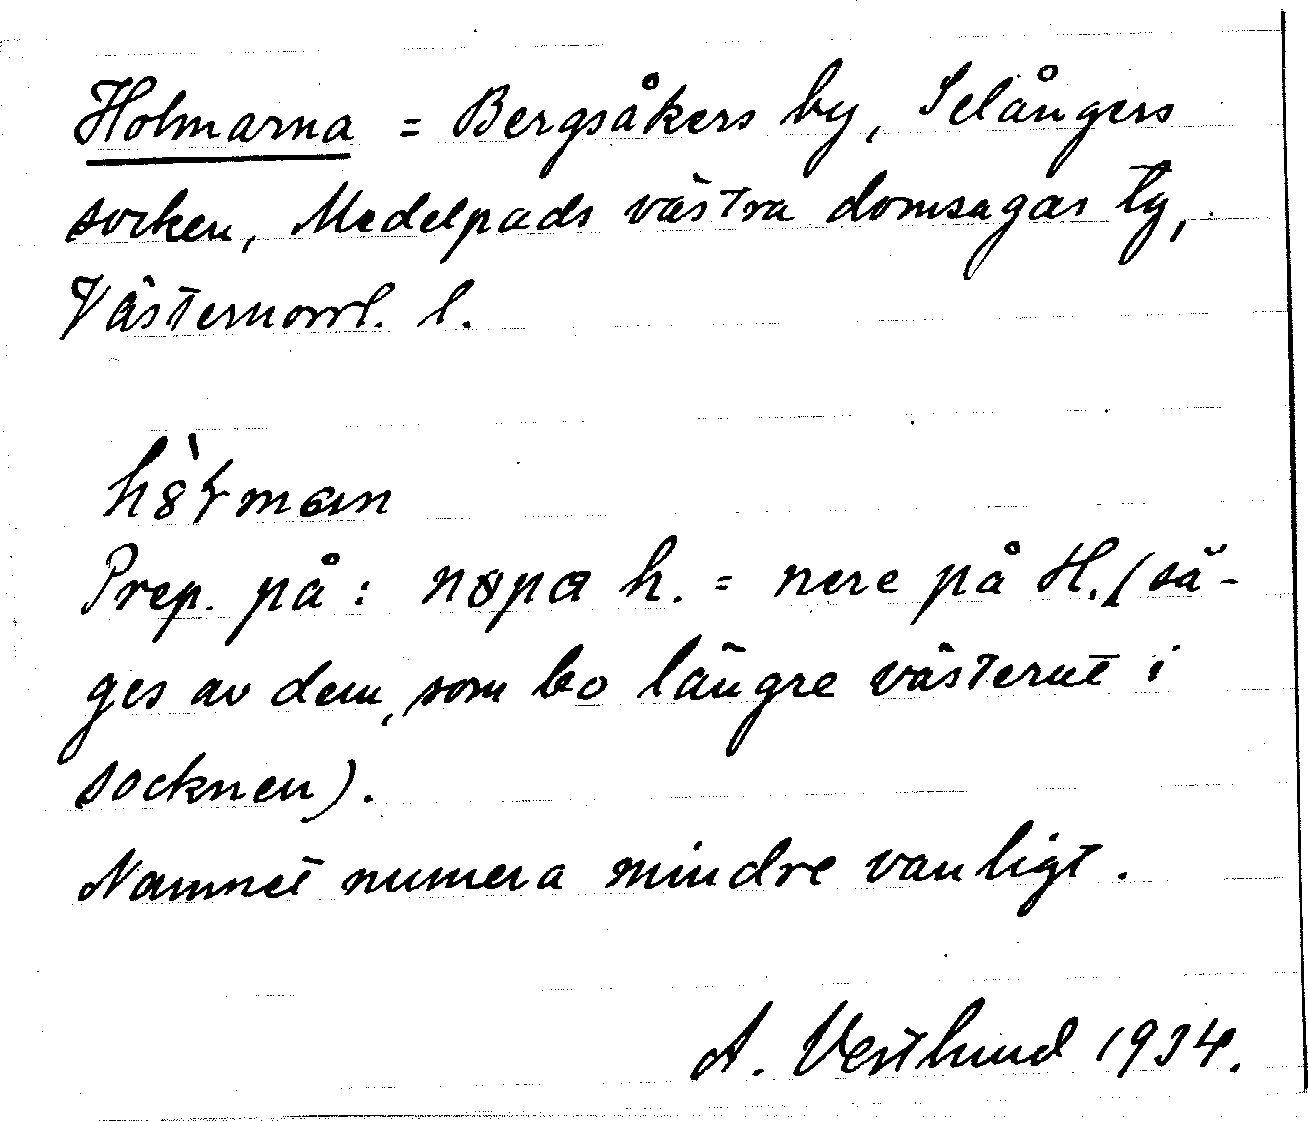 Holmarna = Bergsåkers by, Selångers
socken, Medelpads västra domsagas tg,
Västernorrl. l.
hö̀ɽman
Prep. på: nɵpa h. = nere på H. (sä-
ges av dem, som bo längre västerut i
socknen).
Namnet numera mindre vanligt.
A. Vestlund 1934.